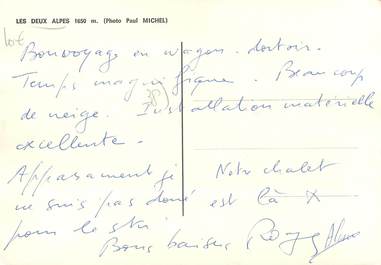 LES DEUX ALPES 1650 m. (Photo Paul MICHEL)
Bon voyage en wagon-dortoir.
Temps magnifique. Beaucoup
de neige. Installation matérielle
excellente.
Apparamment je
ne suis pas doué
pour le ski
Notre chalet
est là X
Bons baisers